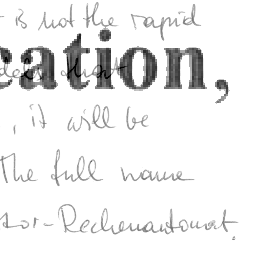 is not the rapid
cation,
that
, it will be
The full name
tor-Rechenautomat.